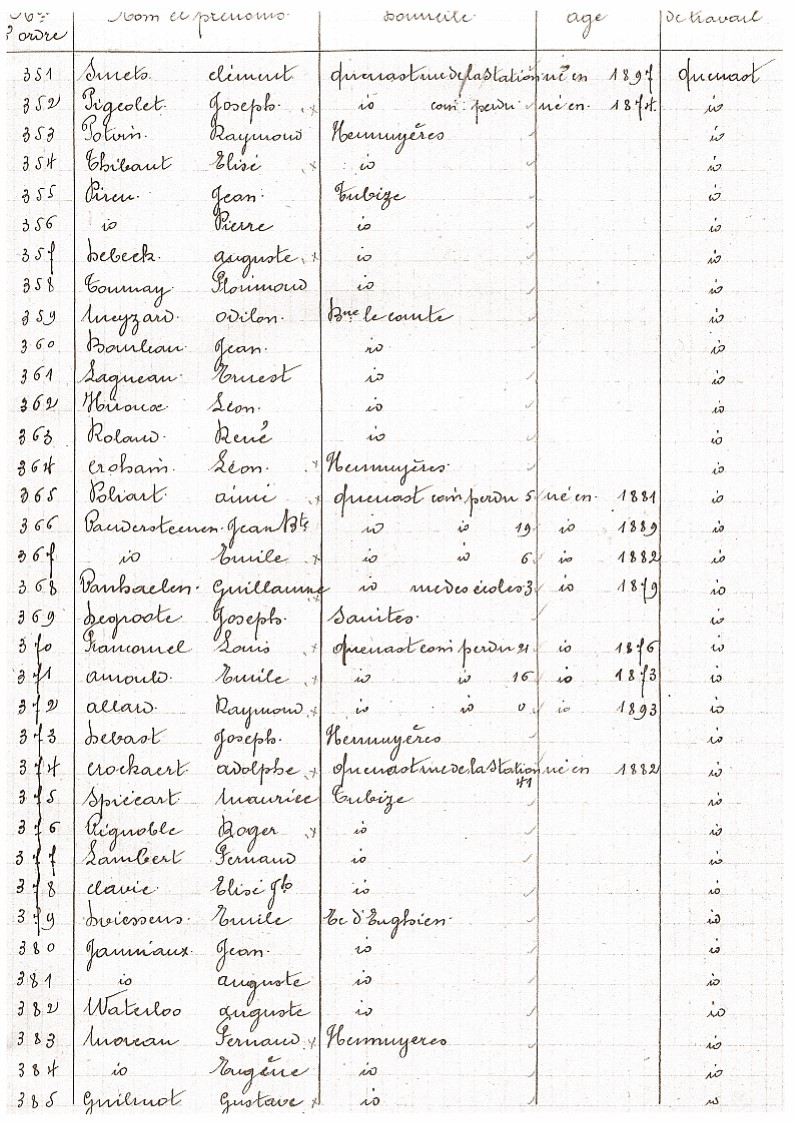 Nos d'ordre Nom et prénoms Domicile age de travail
351 Smets clément quenast rue de la Station né en 1897 quenast
352 Pigeolet Joseph x io coin perdu né en 1874 io
353 Potvin Raymond Hennuyères io
354 Thibaut Elisé x io io
355 Piren Jean Tubize io
356 io Pierre io io
357 Debeck auguste x io io
358 Tournay Florimond io io
359 Meyzard Odilon Bne le comte io
360 Jean io io
361 Lagneau Ernest io io
362 Léon io io
363 Roland René io io
364 crohain Léon x Hennuyères io
365 Poliart aimé x quenast coin perdu 5 né en 1881 io
366 Vandersteenen Jean Bte io io 19 io 1889 io
367 io Emile x io io 6 io 1882 io
368 Vanhaelen Guillaume io rue des écoles 3 io 1879 io
369 Degroote Joseph Saintes io
370 Francornel Louis x quenast coin perdu 21 io 1876 io
371 arnould Emile x io io 16 io 1873 io
372 allard Raymond x io io 0 io 1893 io
373 Debast Joseph Hennuyères io
374 crockaert adolphe x quenast rue de la Station né en 1882 io
41
375 Spiécart Maurice Tubize io
376 Vignoble Roger x io io
377 Lambert Fernand io io
378 clavie Elisé Jh io io
379 Driessens Emile Ec d'Enghien io
380 Janniaux Jean io io
381 io auguste io io
382 Waterloo auguste io io
383 Moreau Fernand x Hennuyeres io
384 io Eugène io io
385 Guilmot Gustave x io io